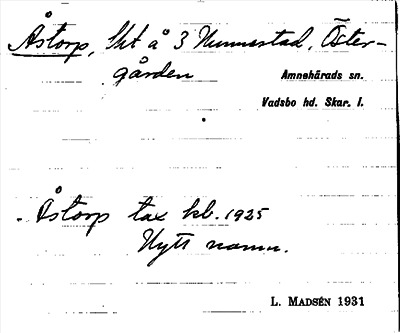 Åstorp, Iht å 3 Nunnestad, Öster-
gården
Amnehärads sn.
Vadsbo hd. Skar. l.
Åstorp tax kb. 1925
Nytt namn.
L. MADSÉN 1931